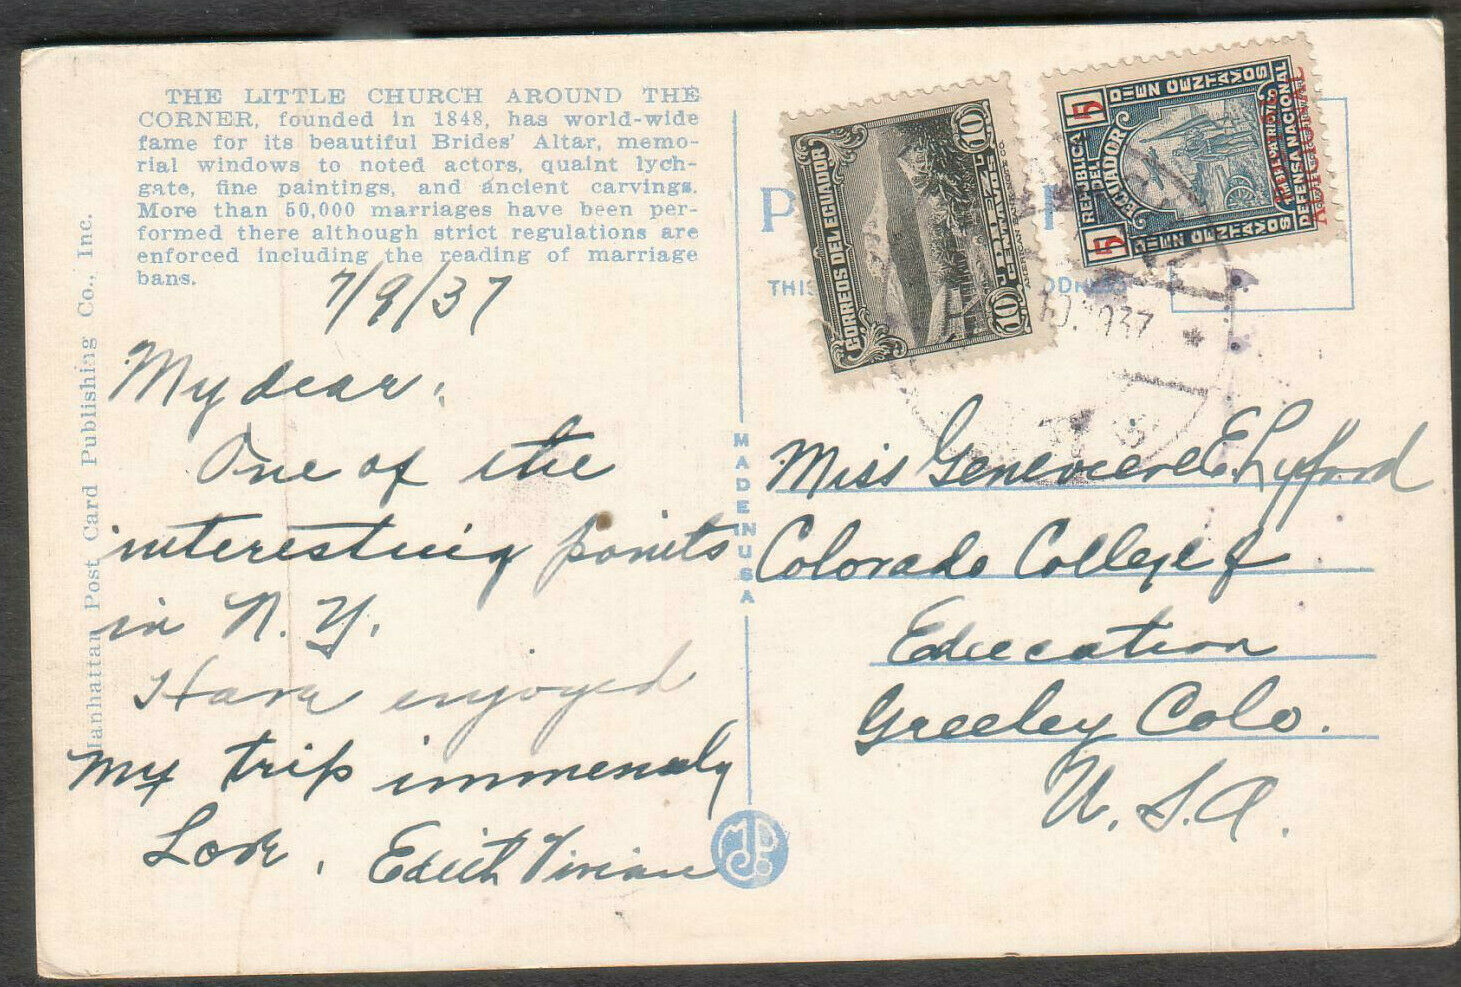 THE LITTLE CHURCH AROUND THE
CORNER, founded in 1848, has world-wide
fame for its beautiful Brides' Altar, memo-
rial windows to noted actors, quaint lych-
gate, fine paintings, and ancient carvings.
More than 50,000 marriages have been per-
formed there although strict regulations are
enforced including the reading of marriage
bans.
7/9/37
My dear:
One of the
interesting points
in N. Y.
Have enjoyed
my trip immensely
Love, Edith Vivian
Manhattan Post Card Publishing Co., Inc.
MADE IN USA
MPC
P
THIS
CORREOS DEL ECUADOR
10 DIEZ CENTAVOS 10
AMERICAN BANK NOTE CO.
REPUBLICA DEL ECUADOR
5 DIEN CENTAVOS 5
DIEN CENTAVOS
DEFENSA NACIONAL
ADICIONAL
1937
Miss Genevieve E. Lyford
Colorado College of
Education
Greeley Colo.
U. S. A.